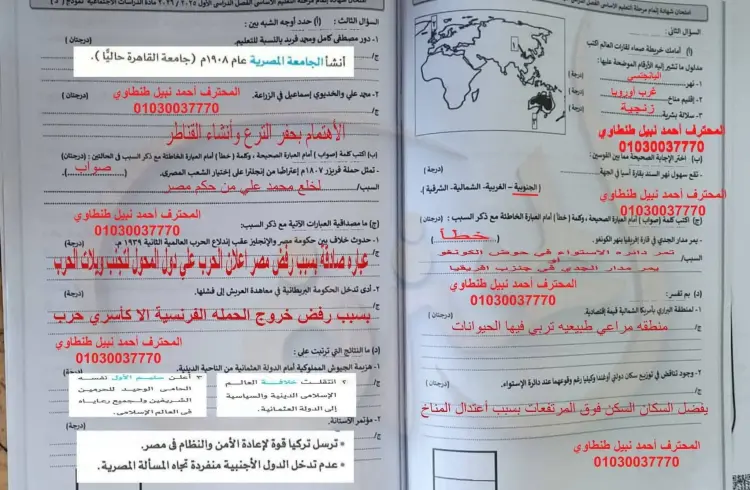 امتحان شهادة إتمام مرحلة التعليم الأساسى الفصل الدراسى الأول ٢٠٢٥ / ٢٠٢٦ مادة الدراسات الاجتماعية نموذج
السؤال الثانى :
(أ) أمامك خريطة صماء لقارات العالم اكتب
مدلول ما تشير إليه الأرقام الموضحة عليها :
١- نهر
اليانجتسي
(درجة)
٢- إقليم مناخ
غرب أوروبا
(درجة)
٣- سلالة بشرية
زنجية
(درجة)
المحترف أحمد نبيل طنطاوي
01030037770
(ب) اختر الإجابة الصحيحة مما بين القوسين :
- تقع سهول نهر السند بقارة آسيا فى الجهة
(درجة)
( الجنوبية – الغربية- الشمالية- الشرقية ).
المحترف أحمد نبيل طنطاوي
01030037770
(ج) اكتب كلمة (صواب ) أمام العبارة الصحيحة ، وكلمة ( خطأ ) أمام العبارة الخاطئة مع ذكر السبب :
- يمر مدار الجدي في قارة إفريقيا بنهر الكونغو.
( خطأ )
السبب/
تمر دائره الاستواء في حوض الكونغو
أو
يمر مدار الجدي في جنوب افريقيا
المحترف أحمد نبيل طنطاوي
01030037770
(د) بم تفسر :
١- لمنطقة البراري بأمريكا الشمالية قيمة إقتصادية.
ج/
منطقه مراعي طبيعيه تربي فيها الحيوانات
٢- وجود تناقض في توزيع سكان دولتي أوغندا وكينيا رغم وقوعهما عند دائرة الإستواء.
(درجتان)
ج/
يفضل السكان السكن فوق المرتفعات بسبب أعتدال المناخ
المحترف أحمد نبيل طنطاوي
01030037770
امتحان شهادة إتمام مرحلة التعليم الأساسى الفصل الدراسى الأول ٢٠٢٥ / ٢٠٢٦ مادة الدراسات الاجتماعية نموذج
السؤال الثالث : (أ) حدد أوجه الشبه بين :
١- دور مصطفى كامل ومحمد فريد بالنسبة للتعليم.
(درجتان)
ج/
أنشأ الجامعة المصرية عام ١٩٠٨م (جامعة القاهرة حاليًا ) .
٢- محمد علي والخديوي إسماعيل في الزراعة.
(درجتان)
المحترف أحمد نبيل طنطاوي
01030037770
ج/
الأهتمام بحفر الترع وأنشاء القناطر
(ب) اكتب كلمة (صواب ) أمام العبارة الصحيحة ، وكلمة ( خطأ ) أمام العبارة الخاطئة مع ذكر السبب في الحالتين : (درجتان)
- تمثل حملة فريزر ١٨٠٧م إعتراضا من إنجلترا على إختيار الشعب المصرى.
( صواب )
السبب/
لخلع محمد علي من حكم مصر
المحترف أحمد نبيل طنطاوي
01030037770
(ج) ما مصداقية العبارات الآتية مع ذكر السبب:
١- حدوث خلاف بين حكومة مصر والإنجليز عقب إندلاع الحرب العالمية الثانية ١٩٣٩ م.
(درجة)
عباره صادقه بسبب رفض مصر اعلان الحرب علي دول المحور لتجنب ويلات الحرب
٢- أدى تدخل الحكومة البريطانية في معاهدة العريش إلى فشلها.
(درجة)
ج/
بسبب رفض خروج الحمله الفرنسية الا كأسري حرب
المحترف أحمد نبيل طنطاوي
01030037770
(د) ما النتائج التي ترتبت على :
١- هزيمة الجيوش المملوكية أمام الدولة العثمانية من الناحية الدينية.
(درجتان)
ج/
٢) انتقلت خلافة العالم
الإسلامى الدينية والسياسية
إلى الدولة العثمانية.
٣) أعلن سليم الأول نفسه
الحامى الوحيد للحرمين
الشريفين ولجميع رعاياه
فى العالم الإسلامى.
٢- مؤتمر الأستانة.
ج/
• ترسل تركيا قوة لإعادة الأمن والنظام فى مصر.
• عدم تدخل الدول الأجنبية منفردة تجاه المسألة المصرية .